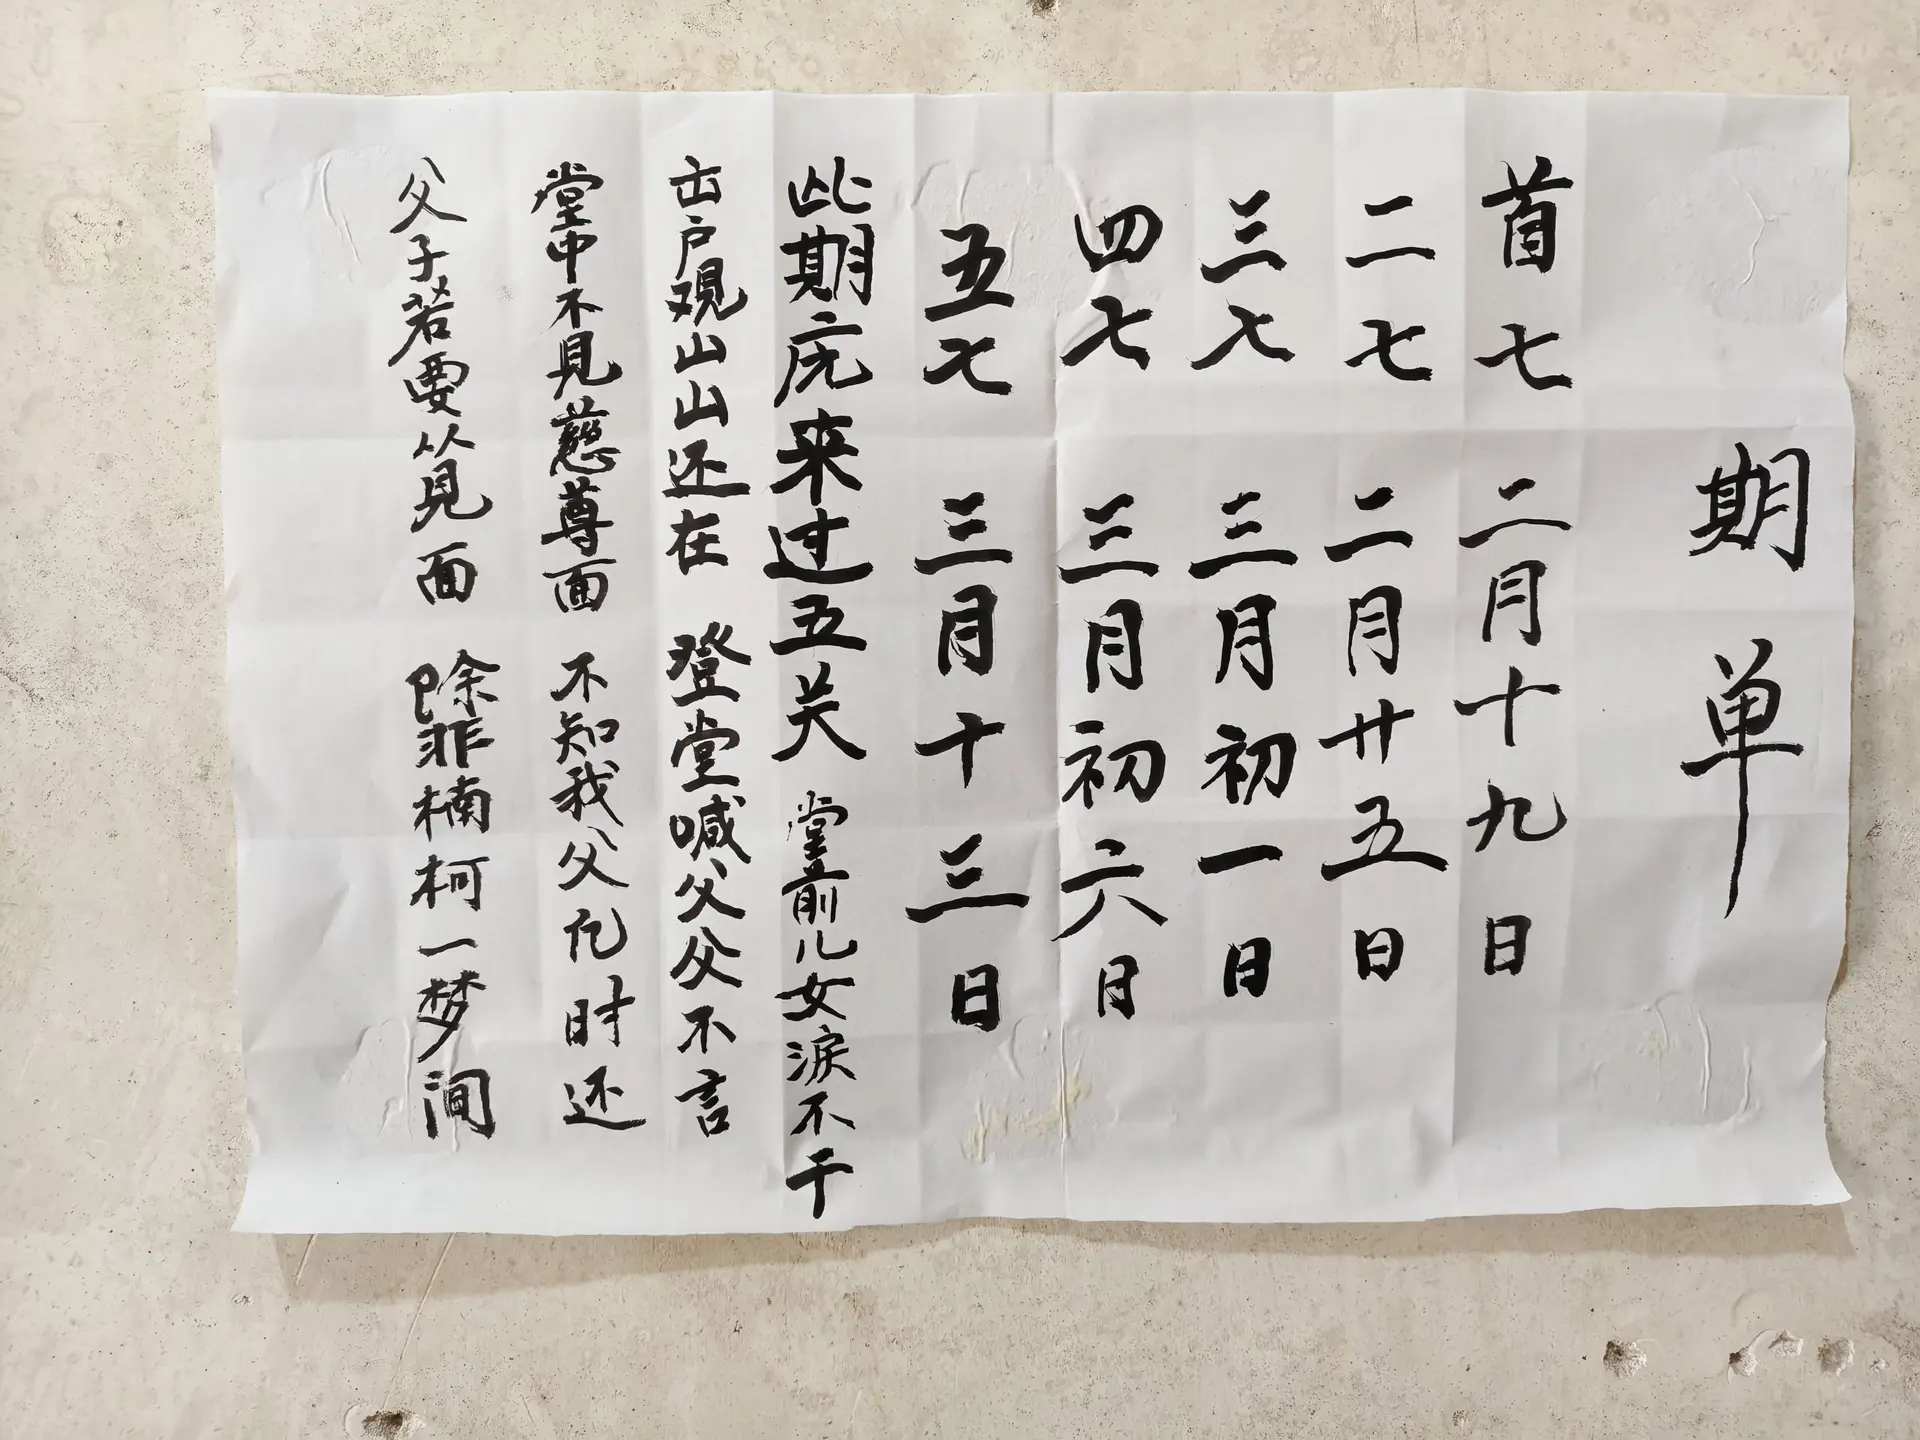 期单
首七 二月十九日
二七 二月廿五日
三七 三月初一日
四七 三月初六日
五七 三月十三日
此期庑来过五关 堂前儿女淚不干
出户覌山山还在 登堂喊父父不言
堂中不見慈尊面 不知我父仡时还
父子若要从見面 除非楠柯一梦间